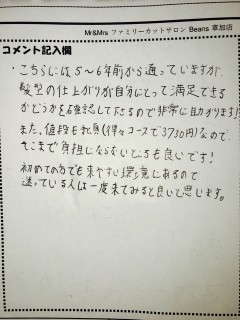 Mr&Mrs ファミリーカットサロン Beans 草加店
コメント記入欄
・こちらには5～6年前から通っていますが、
髪型の仕上がりが自分にとって満足できる
かどうかを確認して下さるので非常に助かります!
また、値段も割(得々コースで3730円)なので、
そこまで負担にならないところも良いです!
初めての方でも来やすい環境にあるので
迷っている人は一度来てみると良いと思います。